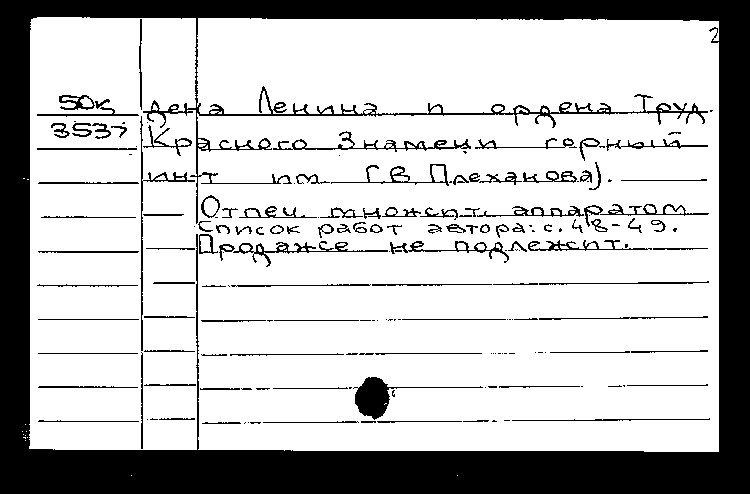 2
50к дена Ленина и ордена Труд.
3537 Красного Знамени горный
ин-т им. Г.В. Плеханова).
Отпеч. множит. аппаратом
Список работ автора: с. 48-49.
Продаже не подлежит.